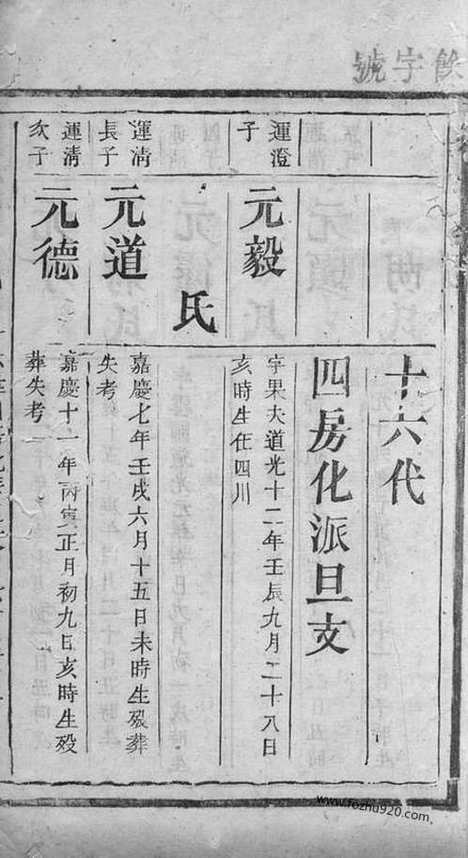 餘字號
十六代
四房化派旦支
運澄
子
元毅
字果夫道光十二年壬辰九月二十八日
亥時生在四川
氏
運清
長子
元道
嘉慶七年壬戌六月十五日未時生歿葬
失考
運清
次子
元德
嘉慶十一年丙寅正月初九日亥時生歿
葬失考
www.fozhu920.com